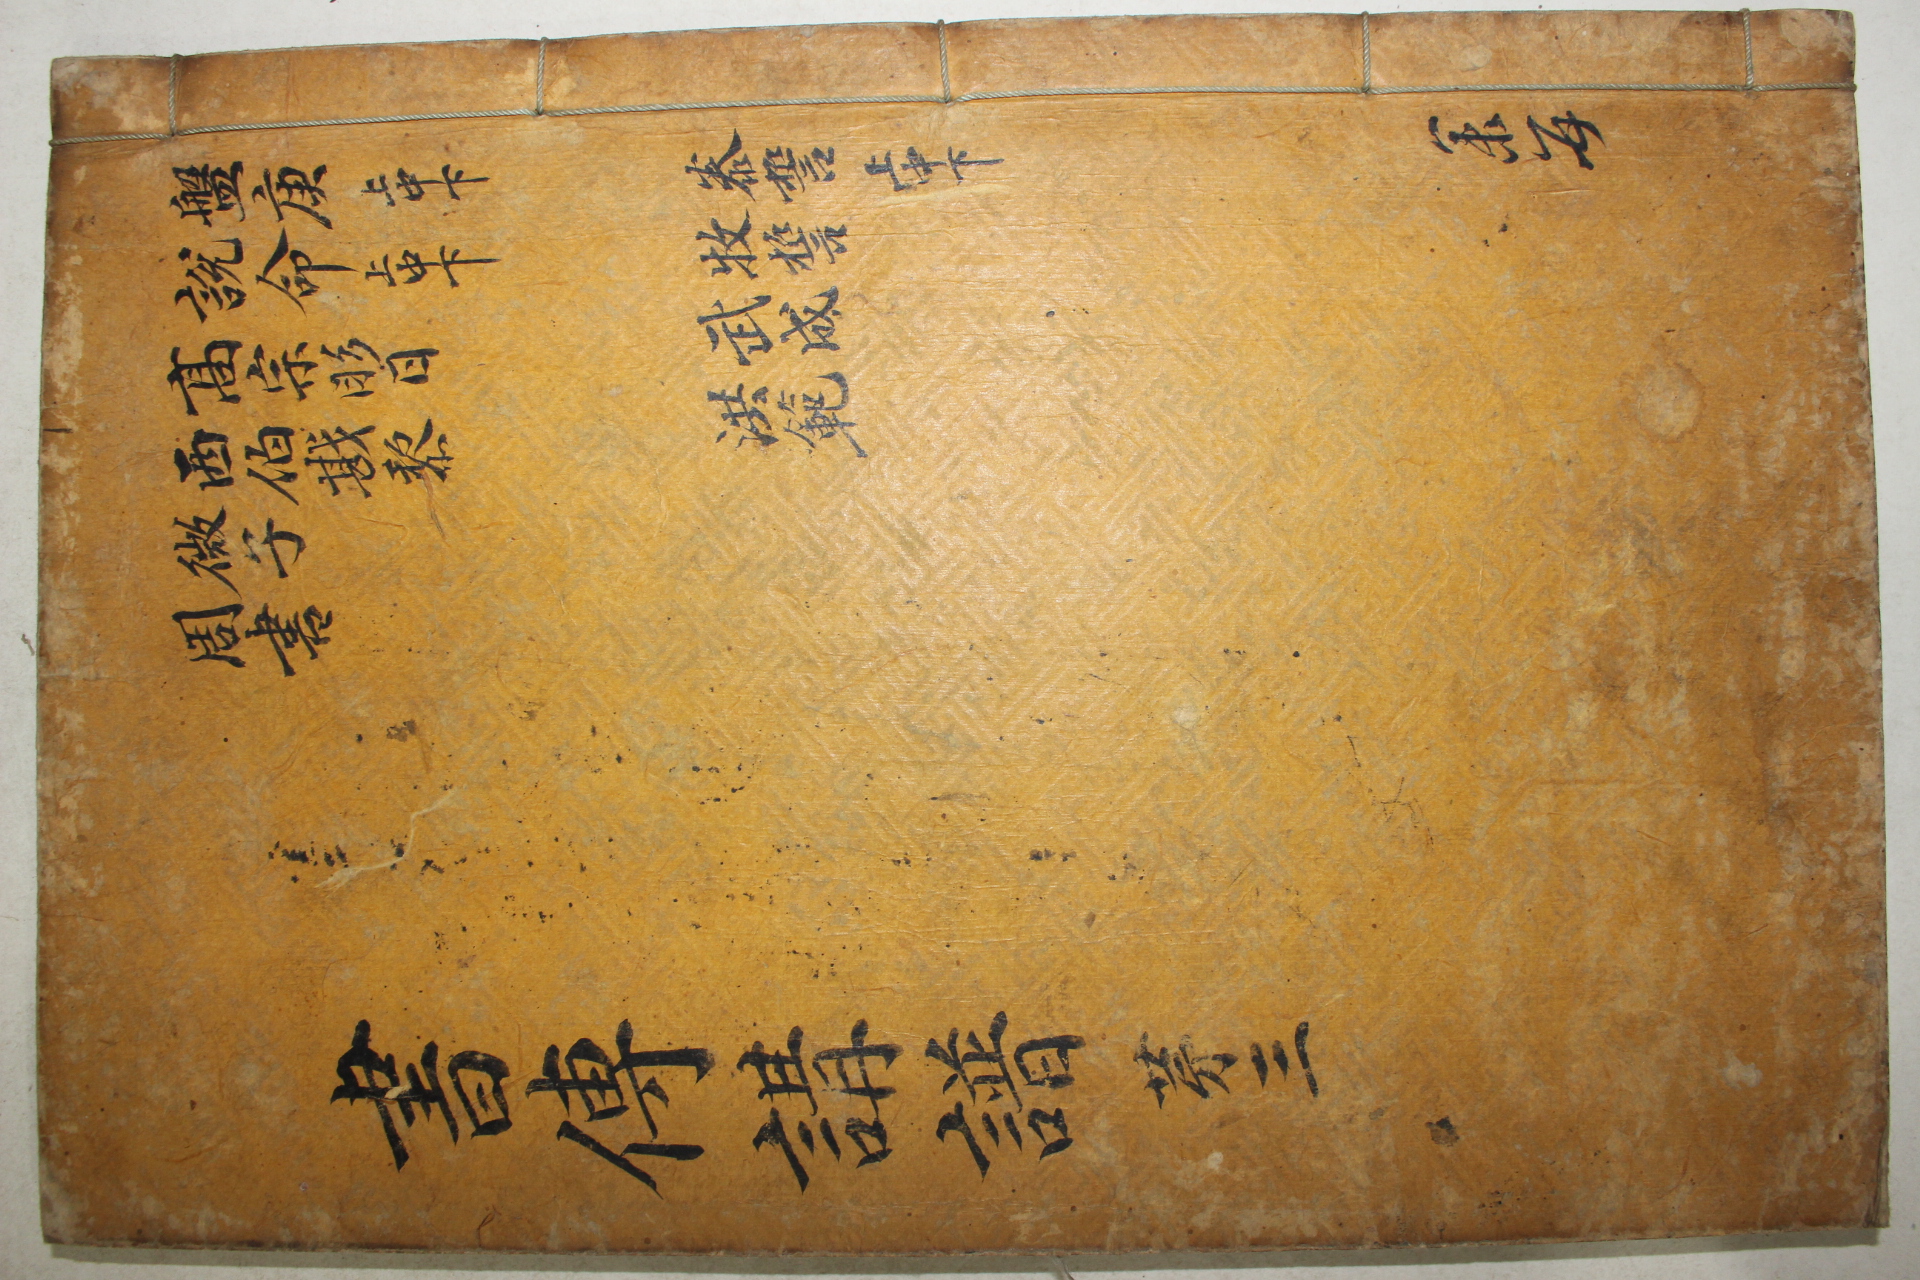 盤庚 上中下
說命 上中下
高宗肜日
西伯戡黎
微子
周書
泰誓 上中下
牧誓
武成
洪範
書傳講譜 卷三